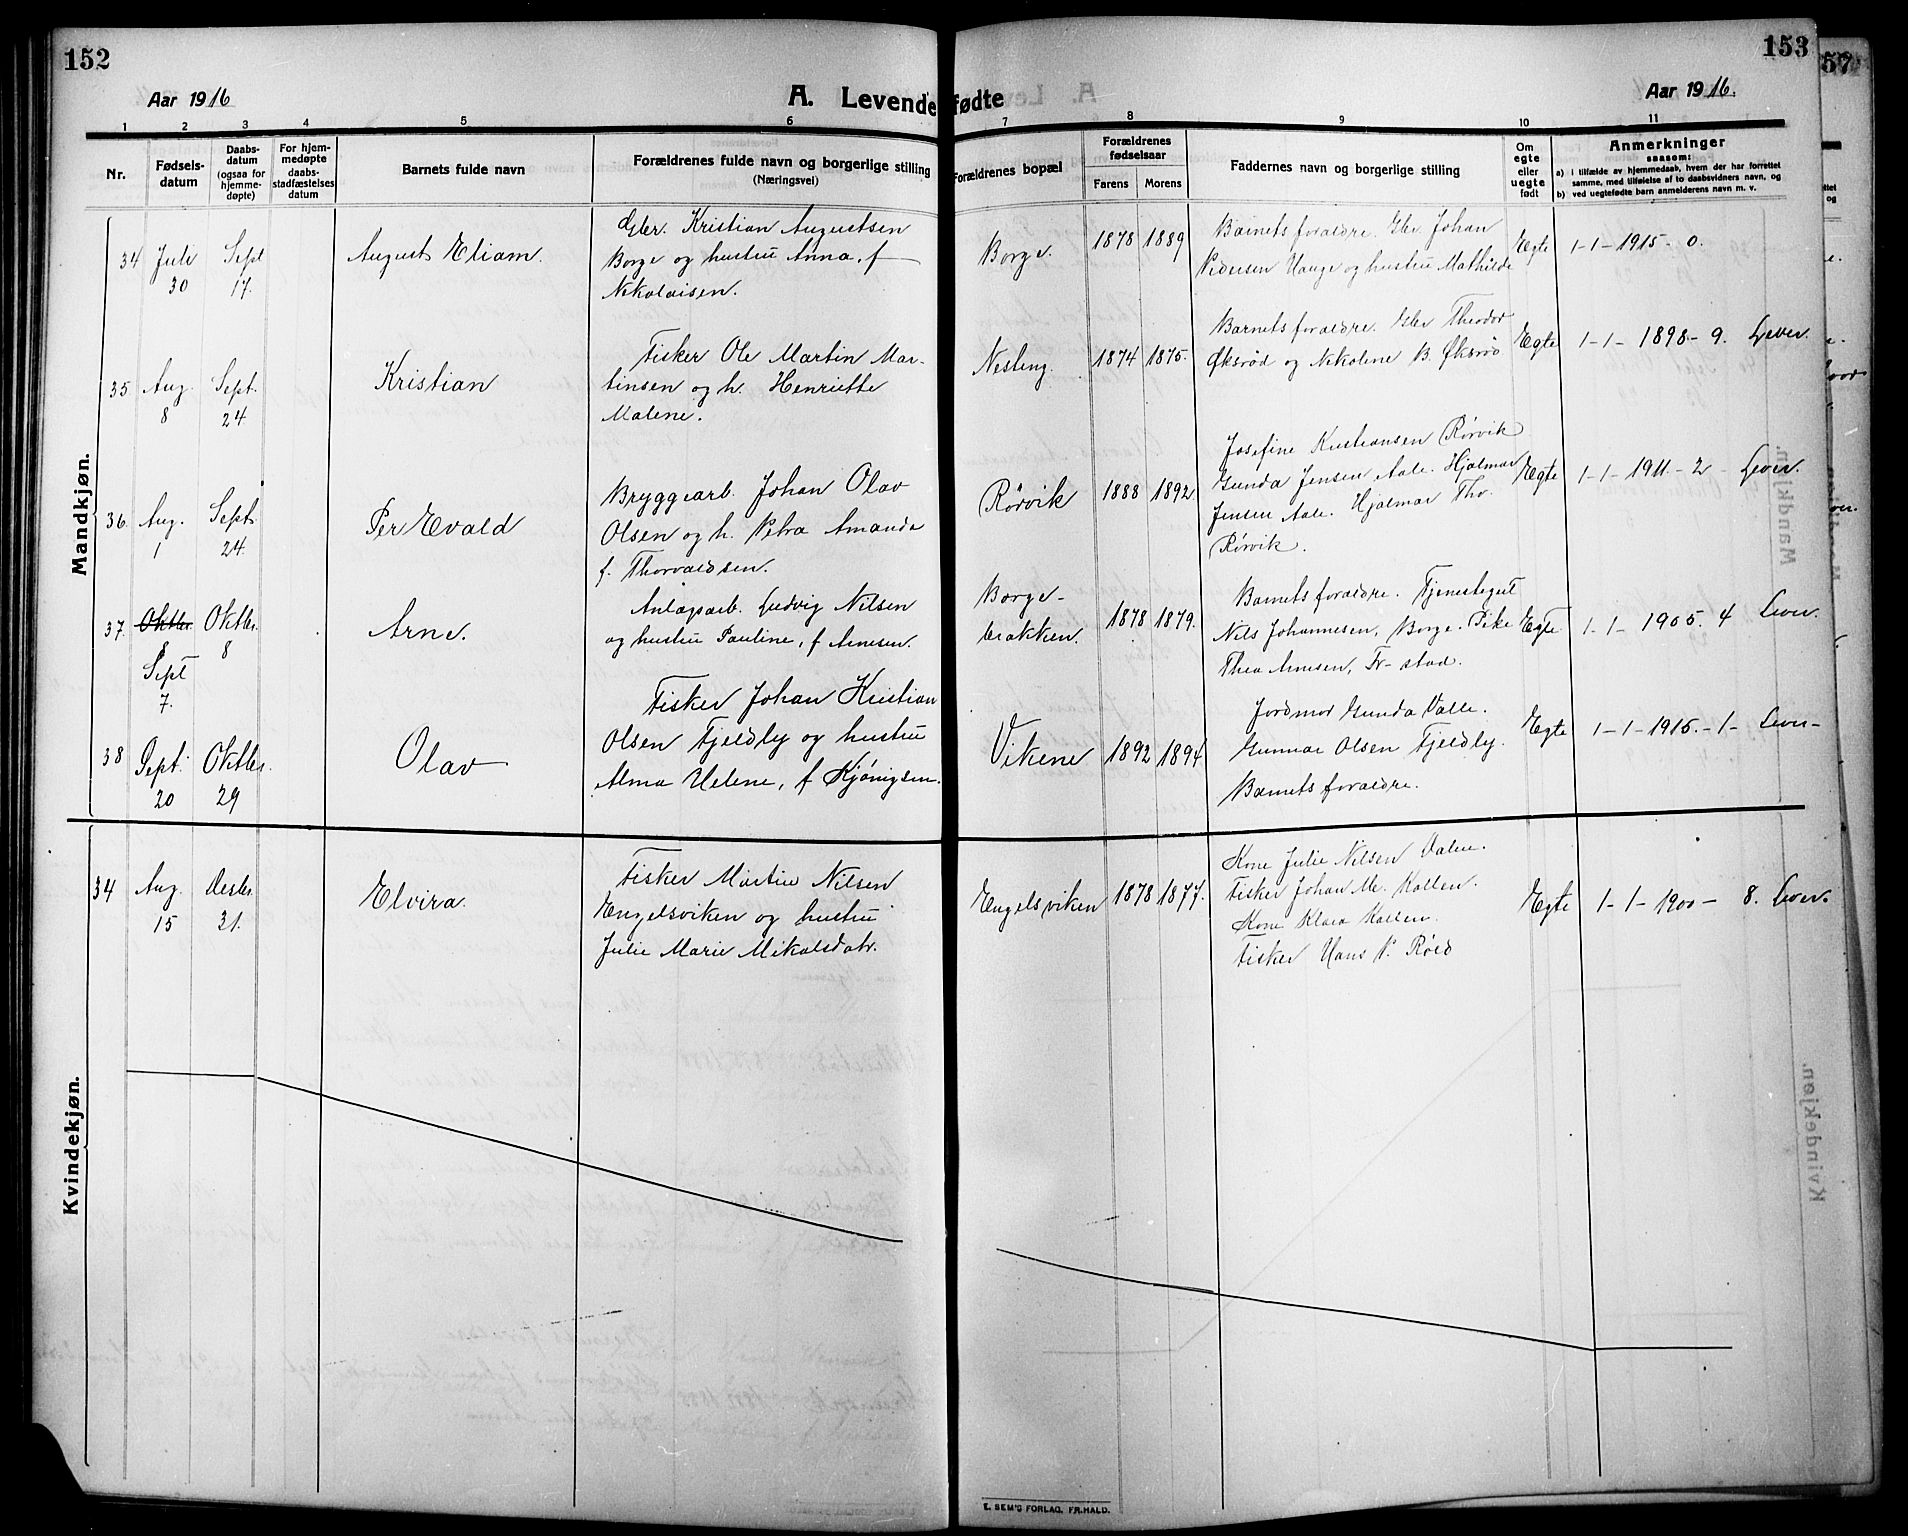 152
Aar 1916
A. Levende
1 2 3 4 5 6
Nr.
Fødsels-
datum
Daabs-
datum
(ogsaa for
hjemme-
døpte)
For hjem-
medøpte
daabs-
stadfæstelses
datum
Barnets fulde navn
Forældrenes fulde navn og borgerlige stilling
(Næringsvei)
Mandkjøn.
34
Juli
30
Sept
17.
August Eliam.
Gbr. Kristian Augustsen
Borge og hustru Anna, f
Nikolaisen.
35
Aug.
8
Sept.
24
Kristian
Fisker Ole Martin Mar-
tinsen og h. Henriette
Malene.
36.
Aug.
1
Sept.
24.
Per Evald
Bryggearb. Johan Olav
Olsen og h. Petra Amanda
f. Thorvaldsen.
37.
Oktbr.
8
Sept
7.
Oktbr.
8
Arne.
Anlægsarb. Ludvig Nilsen
og hustru Pauline, f Arnesen.
38
Sept.
20
Oktbr.
29
Olav
Fisker Johan Kristian
Olsen Fjeldly og hustru
Alma Helene, f Kjønigsen.
Kvindekjøn.
34
Aug.
15
Desbr
31.
Elvira.
Fisker Martin Nilsen
Engelsviken og hustru
Julie Marie Mikalsdatr.
153
57
fødte
Aar 1916.
7 8 9 10 11
Forældrenes bopæl
Forældrenes
fødselsaar
Farens Morens
Faddernes navn og borgerlige stilling
Om
egte
eller
uegte
født
Anmerkninger
saasom:
a) i tilfælde av hjemmedaab, hvem der har forrettet
samme, med tilføielse af to daabsvidners navn, og
b) ved uegtefødte barn anmelderens navn m. v.
Borge.
1878 1889
Barnets forældre. Gbr. Johan
Pedersen Hauge og hustru Mathilde
Egte
1-1-1915-0.
Nesleng.
1874 1875.
Barnets forældre. Gbr Theodor
Øksrød og Nikoline B. Øksrød
Egte
1-1-1898-9. Lever.
Rørvik
1888 1892
Josefine Kristiansen Rørvik
Gunda Jensen Aale. Hjalmar
Jensen Aale. Hjalmar Tho.
Rørvik.
Egte
1-1-1911-2- Lever.
Borge-
brakken.
1878 1879.
Barnets forældre. Tjenestegut
Nils Johannesen, Borge. Pike
Thea Arnesen, Fr-stad.
Egte
1-1-1905. 4 Lever.
Vikene
1892 1894
Jordmor Gunda Valle.
Gunnar Olsen Fjeldly.
Barnets forældre.
Egte
1-1-1915.-1- Lever-
Engelsviken
1878 1877.
Kone Julie Nilsen Valen.
Fisker Johan M. Kallen.
Kone Klara Kallen.
Fisker Hans P. Røed
Egte
1-1-1900-8. Lever.
E. SEM'S FORLAG, FR.HALD.